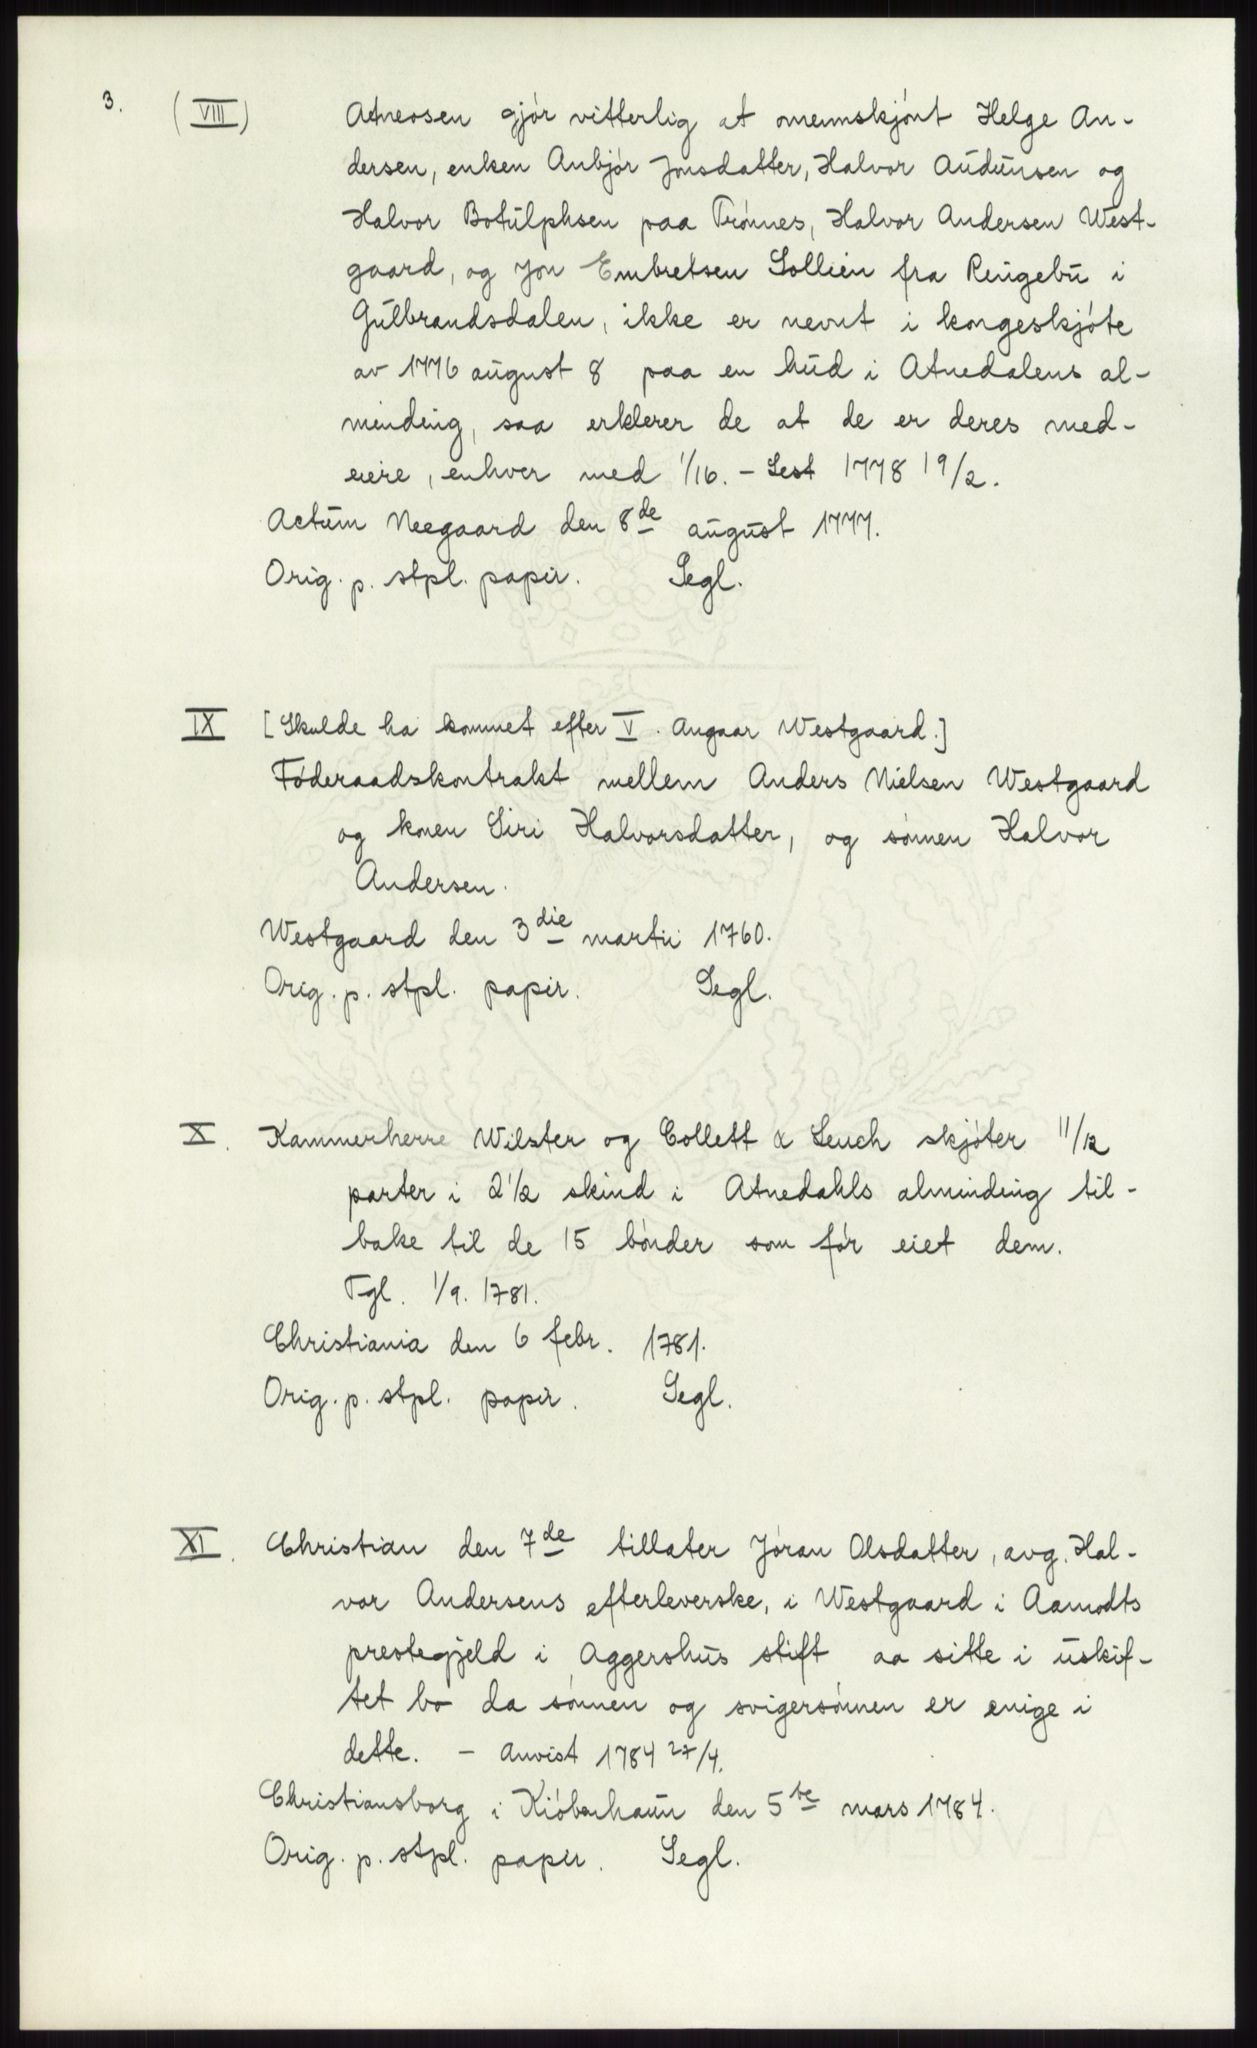 3. (VIII) Atneosen gjór vitterlig at omennskjónt Helge An-
dersen, enken Anbjór Jonsdatter, Halvor Audunsen og
Halvor Botulphsen paa Trónnes, Halvor Andersen West-
gaard, og Jon Embretsen Sollien fra Ringebu i
Gulbrandsdalen, ikke er nevnt i kongeskjóte
av 1776 august 8 paa en hud i Atnedalens al-
minding, saa erklerer de at de er deres med-
eiere, enhver med 1/16. - Lest 1778 19/2.
Actum Neegaard den 8de august 1777.
Orig. p. stpl. papir. Segl.
IX [Skulde ha kommet efter V. Angaar Westgaard.]
Fóderaadskontrakt mellem Anders Nielsen Westgaard
og konen Siri Halvorsdatter, og sónnen Halvor
Andersen.
Westgaard den 3die martii 1760.
Orig. p. stpl. papir. Segl.
X. Kammerherre Wilster og Collett & Leuch skjóter 11/12
parter i 2 1/2 skind i Atnedahls alminding til-
bake til de 15 bónder som fór eiet dem.
Tgl. 1/9. 1781.
Christiania den 6 febr. 1781.
Orig. p. stpl. papir. Segl.
XI. Christian den 7de tillater Jóran Olsdatter, avg. Hal-
vor Andersens efterleverske, i Westgaard i Aamodts
prestegjeld i Aggershus stift aa sitte i uskif-
tet bo da sónnen og svigersónnen er enige i
dette. - Anvist 1784 27/4.
Christiansborg i Kióbenhaun den 5te mars 1784.
Orig. p. stpl. papir. Segl.